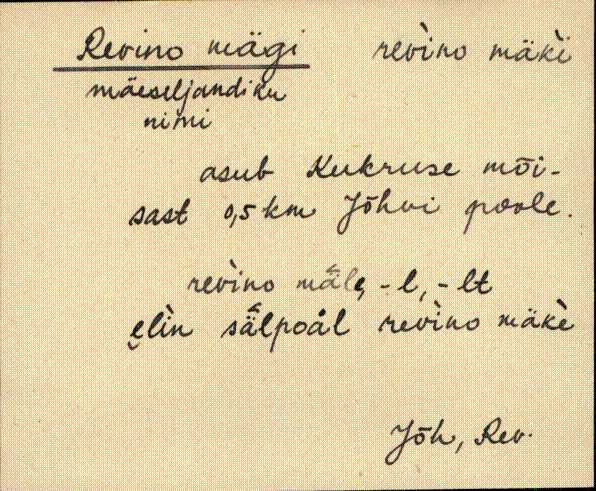 Revino mägi revìno mäkì
mäeseljandiku
nimi
asub Kukruse mõi-
sast 0,5 km Jõhvi poole.
revìno mäle, -l, -lt
elìn sälpoàl revìno mäkè
Jõh, Rev.